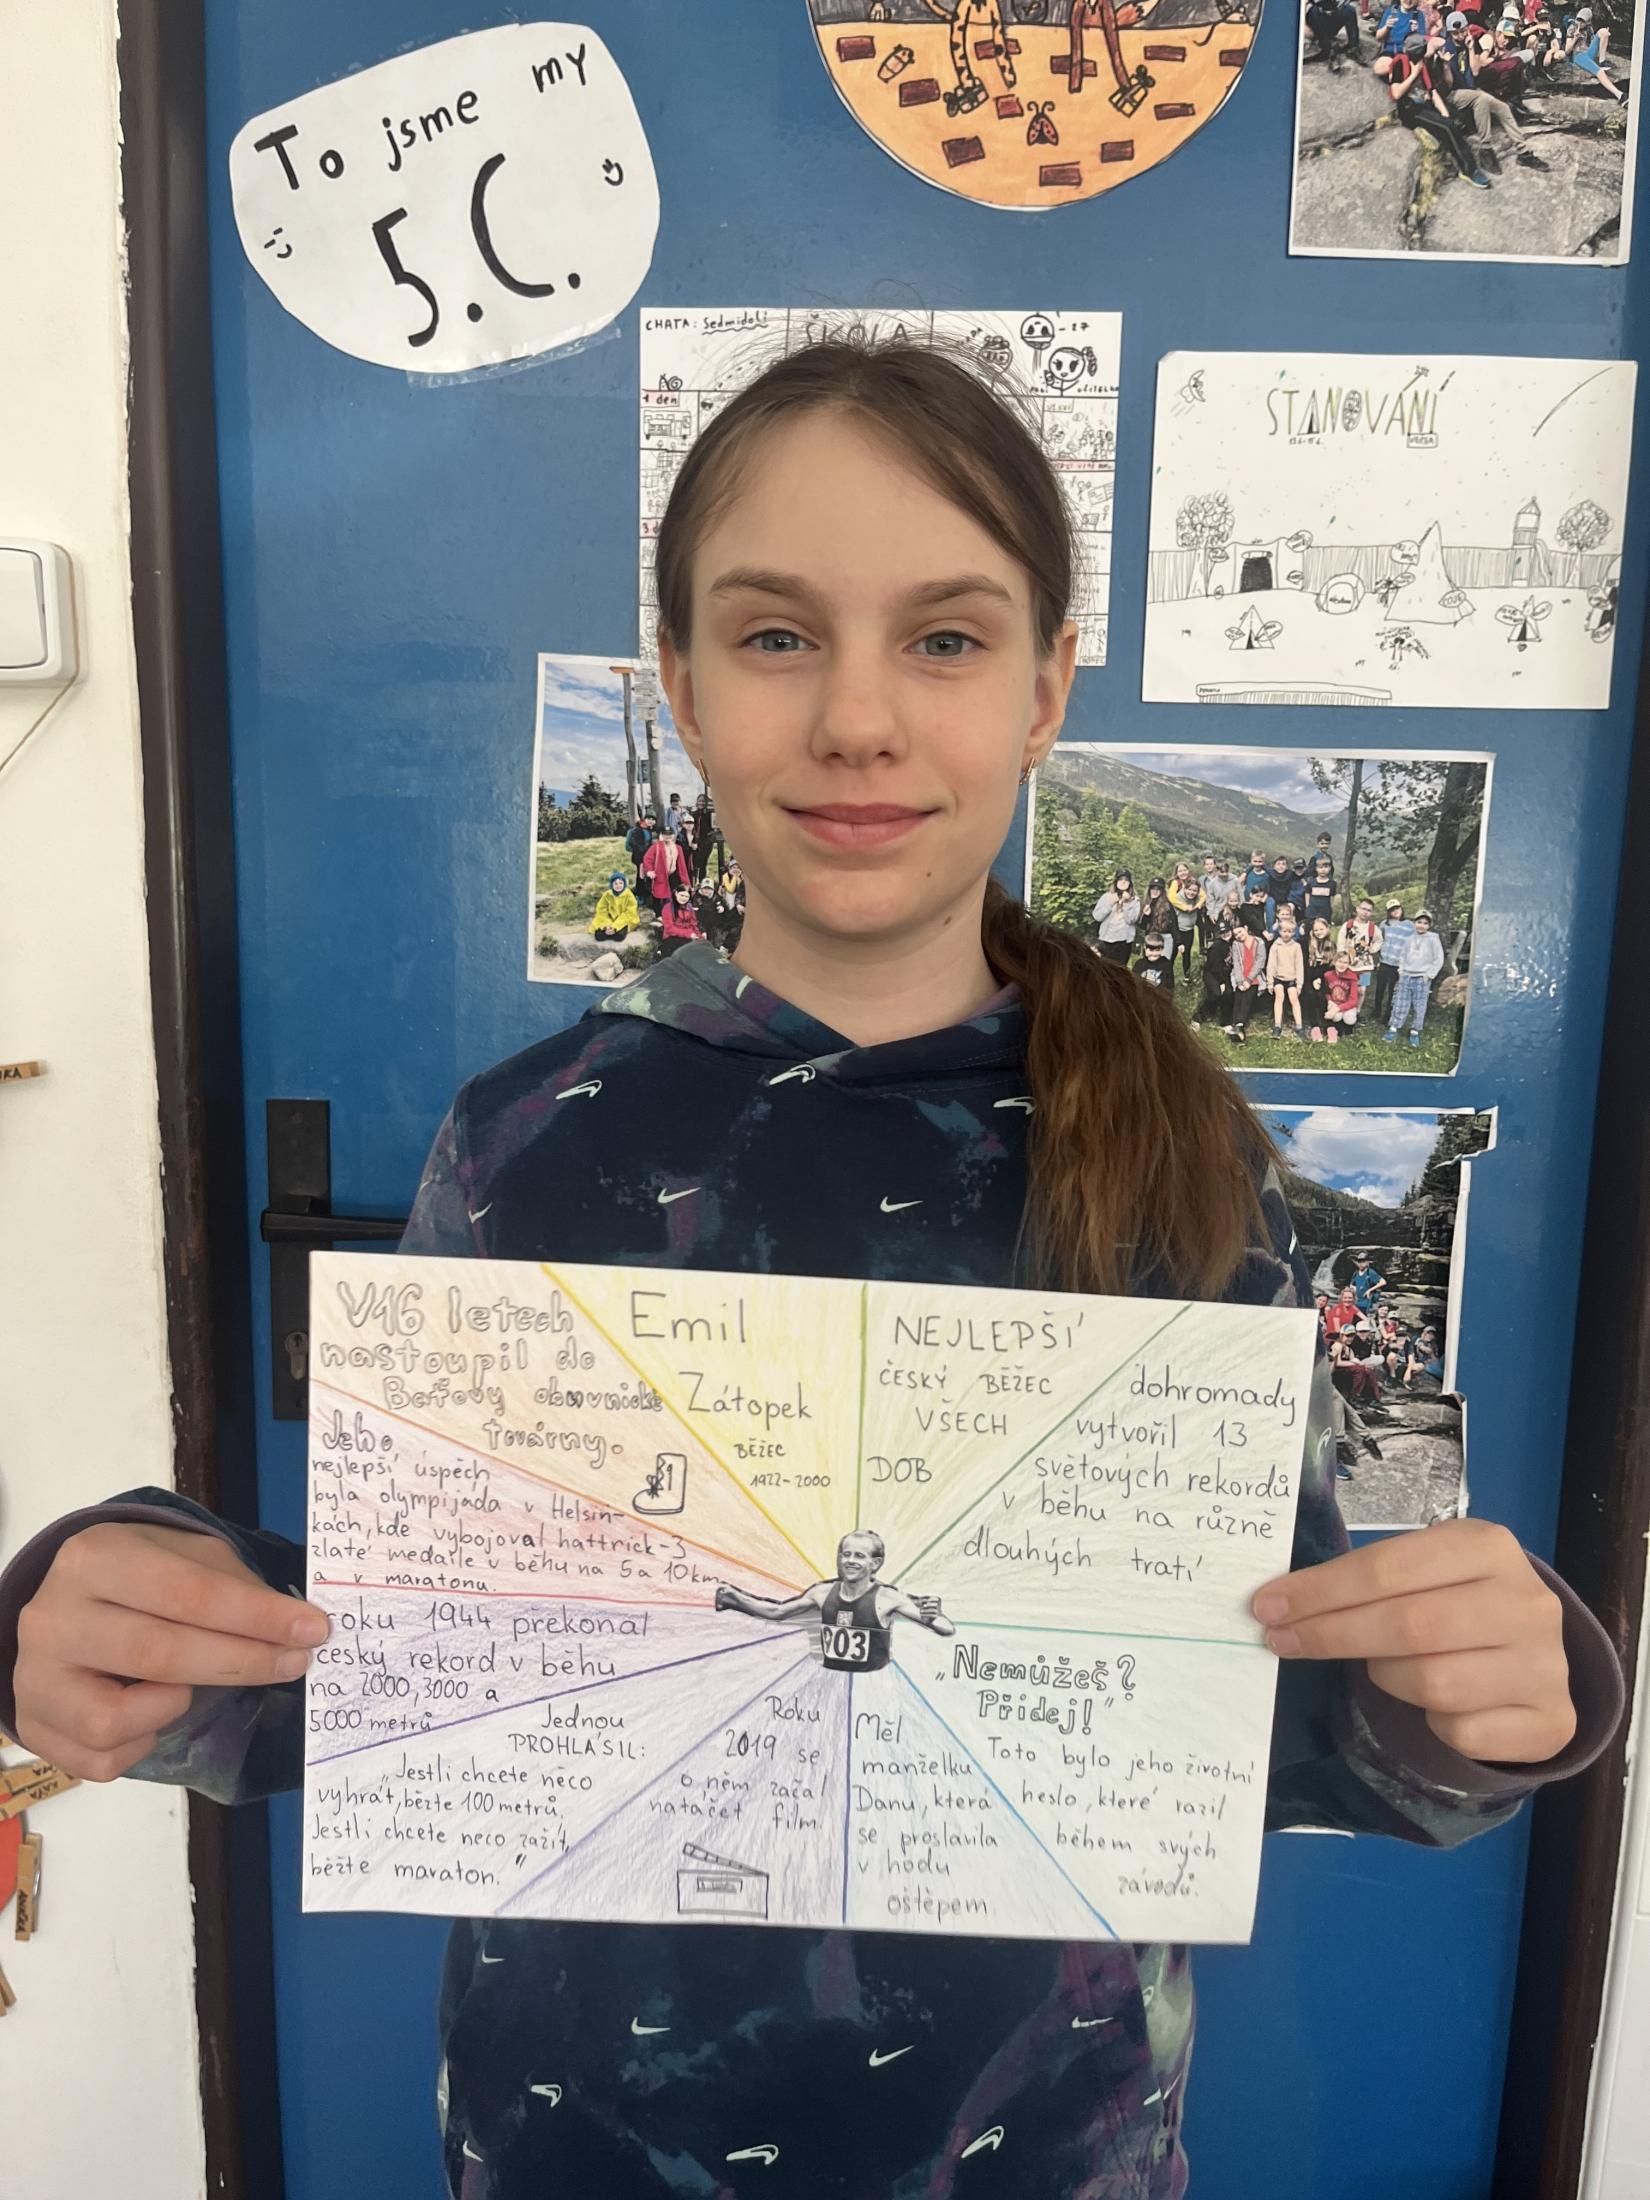 To jsme my
5.C.
CHATA: Sedmidolí
ŠKOLA
1 den
STANOVÁNÍ
V16 letech
nastoupil do
Baťovy obuvnické
továrny.
Emil
Zátopek
BĚŽEC
1922-2000
NEJLEPŠÍ
ČESKÝ BĚŽEC
VŠECH
DOB
dohromady
vytvořil 13
světových rekordů
v běhu na různě
dlouhých tratí
Jeho
nejlepší úspěch
byla olympijáda v Helsin-
kách, kde vybojoval hattrick-3
zlaté medaile v běhu na 5 a 10km
a v maratonu.
roku 1944 překonal
český rekord v běhu
na 2000, 3000 a
5000 metrů
903
„Nemůžeš?
Přidej!"
Toto bylo jeho životní
heslo, které razil
během svých
závodů.
Jednou
PROHLÁSIL:
„Jestli chcete něco
vyhrát, běžte 100 metrů.
Jestli chcete neco zažít,
běžte maraton."
Roku
2019 se
o něm začal
natáčet film.
Měl
manželku
Danu, která
se proslavila
v hodu
oštěpem